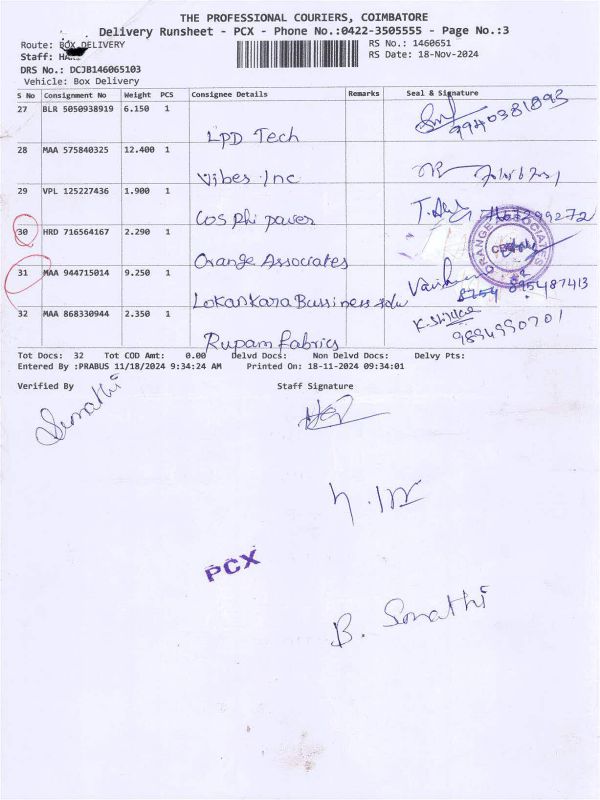 THE PROFESSIONAL COURIERS, COIMBATORE
Delivery Runsheet - PCX - Phone No.:0422-3505555 - Page No.:3
Route: BOX DELIVERY
RS No.: 1460651
Staff:
RS Date: 18-Nov-2024
DRS No.: DCJB146065103
Vehicle: Box Delivery
S No Consignment No Weight PCS Consignee Details Remarks Seal & Signature
27 BLR 5050938919 6.150 1
LPD Tech
9940381893
28 MAA 575840325 12.400 1
Vibes Inc
29 VPL 125227436 1.900 1
Cos phi paver
30 HRD 716564167 2.290 1
Orange Associates
ORANGE ASSOCIATES
31 MAA 944715014 9.250 1
Lokankara Bussiness
8954 8954 87413
32 MAA 868330944 2.350 1
Rupam fabrics
9894990701
Tot Docs: 32 Tot COD Amt: 0.00 Delvd Docs: Non Delvd Docs: Delvy Pts:
Entered By :PRABUS 11/18/2024 9:34:24 AM Printed On: 18-11-2024 09:34:01
Verified By Staff Signature
PCX
B. Sonathi